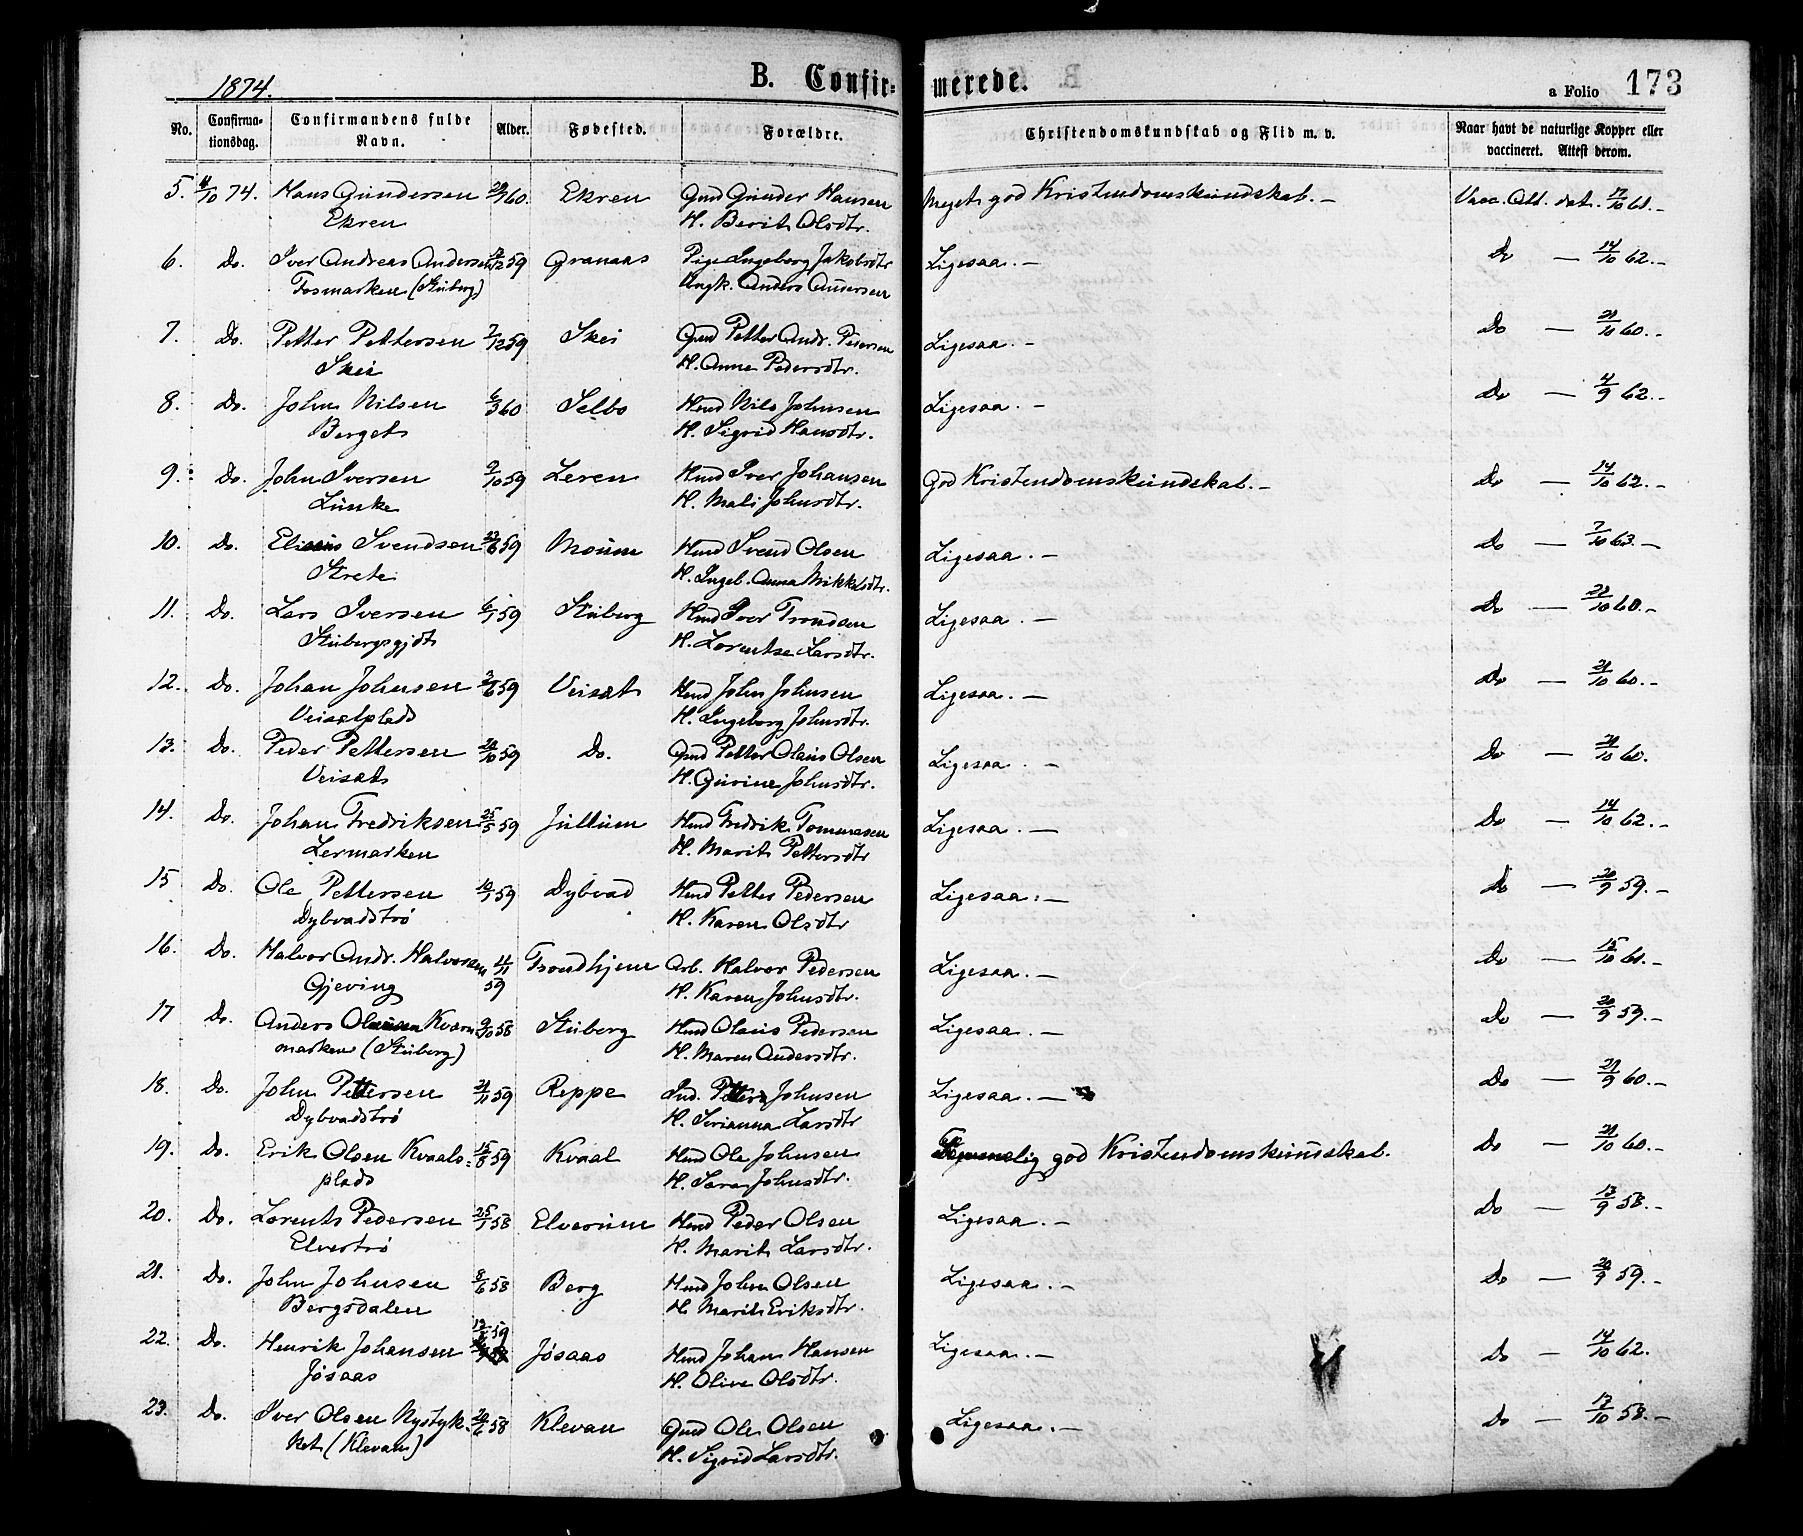 1874.
B. Confir=
merede.
a Folio 173
No.
Confirma-
tionsdag.
Confirmandens fulde
Navn.
Alder.
Fødested.
Forældre.
Christendomskundskab og Flid m. v.
Naar havt de naturlige Kopper eller
vaccineret. Attest derom.
5. 4/10 74. Hans Gundersen 60 Ekren Gmd Gunder Hansen Meget god Kristendomskundskab. — Vacc. Att. dat. 17/10 61. —
Ekren H. Berit Olsdtr.
6. Do. Iver Andreas Andersen 59 Granaas Pige Ingeborg Jakobsdtr Ligesaa. — Do — 14/10 62. —
Fosmarken (Stuberg) Ungk. Anders Andersen
7. Do. Petter Pettersen 7/12 59 Skei Gmd Petter Andr. Pedersen Ligesaa. — Do — 21/10 60. —
Skei H. Anne Pedersdtr.
8. Do. John Nilsen 6/3 60 Selbo Hmd Nils Johnsen Ligesaa. — Do — 4/9 62. —
Berget H. Sigrid Hansdtr.
9. Do. John Iversen 9/10 59 Leren Hmd Iver Johansen God Kristendomskundskab. — Do — 14/10 62. —
Lunke H. Mali Johnsdtr.
10. Do. Elisæus Svendsen 59 Moum Hmd Svend Olsen Ligesaa. — Do — 7/10 63. —
Strete H. Ingeb. Anna Mikkelsdtr.
11. Do. Lars Iversen 6/1 59 Stuberg Hmd Iver Trondsen Ligesaa. — Do — 22/10 60. —
Stubergsgjdt H. Lorentse Larsdtr.
12. Do. Johan Johnsen 2/6 59 Veisæt Hmd John Johnsen Ligesaa. — Do — 21/10 60. —
Veisætplads H. Ingeborg Johnsdtr.
13. Do. Peder Pettersen 24/10 59 Do. Gmd Petter Olaus Olsen Ligesaa. — Do — 21/10 60.
Veisæt H. Gurine Johnsdtr.
14. Do. Johan Fredriksen 25/5 59 Jullum Hmd Fredrik Tommesen Ligesaa. — Do — 14/10 62. —
Lermarken H. Marit Pettersdtr
15 Do. Ole Pettersen 10/1 59 Dybvad Hmd Petter Pedersen Ligesaa. — Do — 20/9 59. —
Dybvadstrø H. Karen Olsdtr
16. Do. Halvor Andr. Halvorsen 4/11 59 Trondhjem Arb. Halvor Pedersen Ligesaa. — Do — 15/10 61. —
Gjeving H. Karen Johnsdtr.
17 Do. Anders Olausen Kværn 9/10 58 Stuberg Hmd Olaus Pedersen Ligesaa. — Do — 20/9 59. —
marken (Stuberg) H. Maren Andersdtr.
18. Do. John Pettersen 21/11 59 Reppe Ind. Petter Johnsen Ligesaa. — Do — 21/9 60. —
Dybvadstrø H. Serianna Larsdtr
19. Do. Erik Olsen Kvaals= 15/8 59 Kvaal Hmd Ole Johnsen Temmelig god Kristendomskundskab. Do — 21/10 60. —
plads H. Sara Johnsdtr.
20. Do. Lorents Pedersen 25/1 58 Elverum Hmd Peder Olsen Ligesaa. — Do — 13/9 58. —
Elvertrø H. Marit Larsdtr.
21. Do. John Johnsen 8/6 58 Berg Hmd John Olsen Ligesaa. — Do — 20/9 59. —
Bergsdalen H. Marit Eriksdtr.
22. Do. Henrik Johansen 59 Jøsaas Hmd Johan Hansen Ligesaa. — Do — 14/10 62.
Jøsaas H. Olive Olsdtr.
23. Do. Iver Olsen Nystyk- 58 Klevan Gmd Ole Olsen Ligesaa. — Do — 17/10 58. —
ket (Klevan) H. Sigrid Larsdtr.